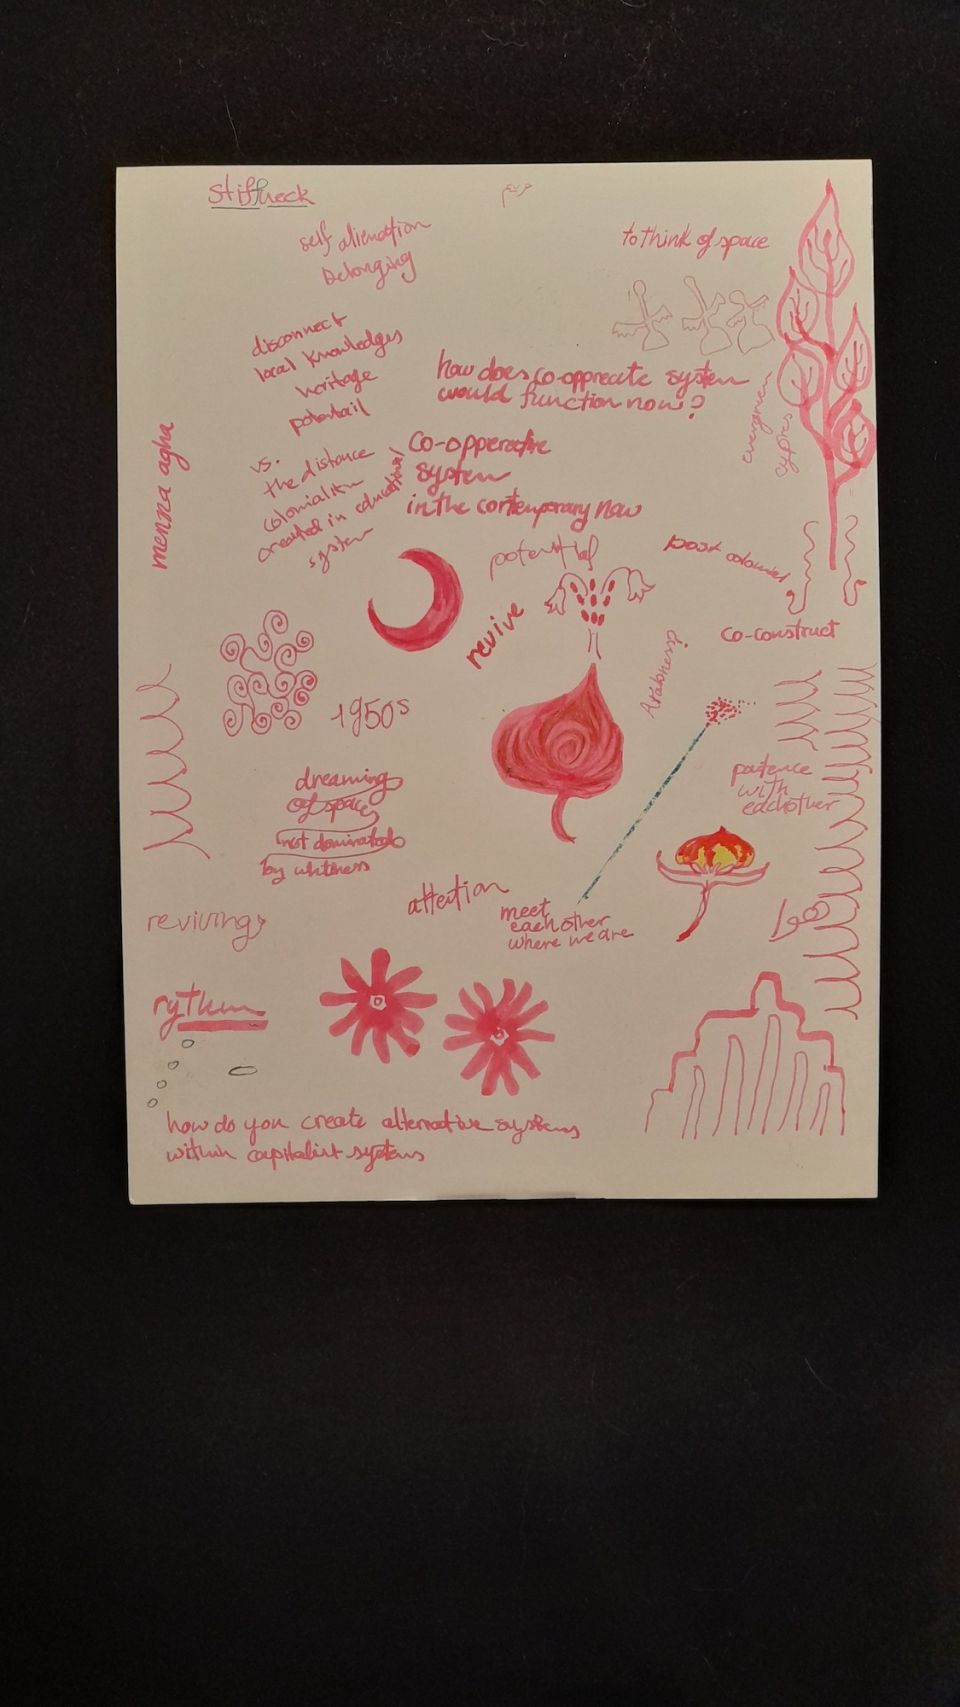 stiffneck
مريم
self alienation
Belonging
to think of space
disconnect
local knowledges
heritage
potentail
vs.
the distance
colonialism
created in educational
system
menna agha
how does co-oppreate system
would function now?
evergreen
cypres
co-opperative
system
in the contemporary now
potential
post colonial
revive
Arabness?
co-construct
1950s
dreaming
of space
not dominated
by whiteness
patence
with
eachother
attention
meet
each other
where we are
reviving
rythm
how do you create alternative systems
within capitalist systems